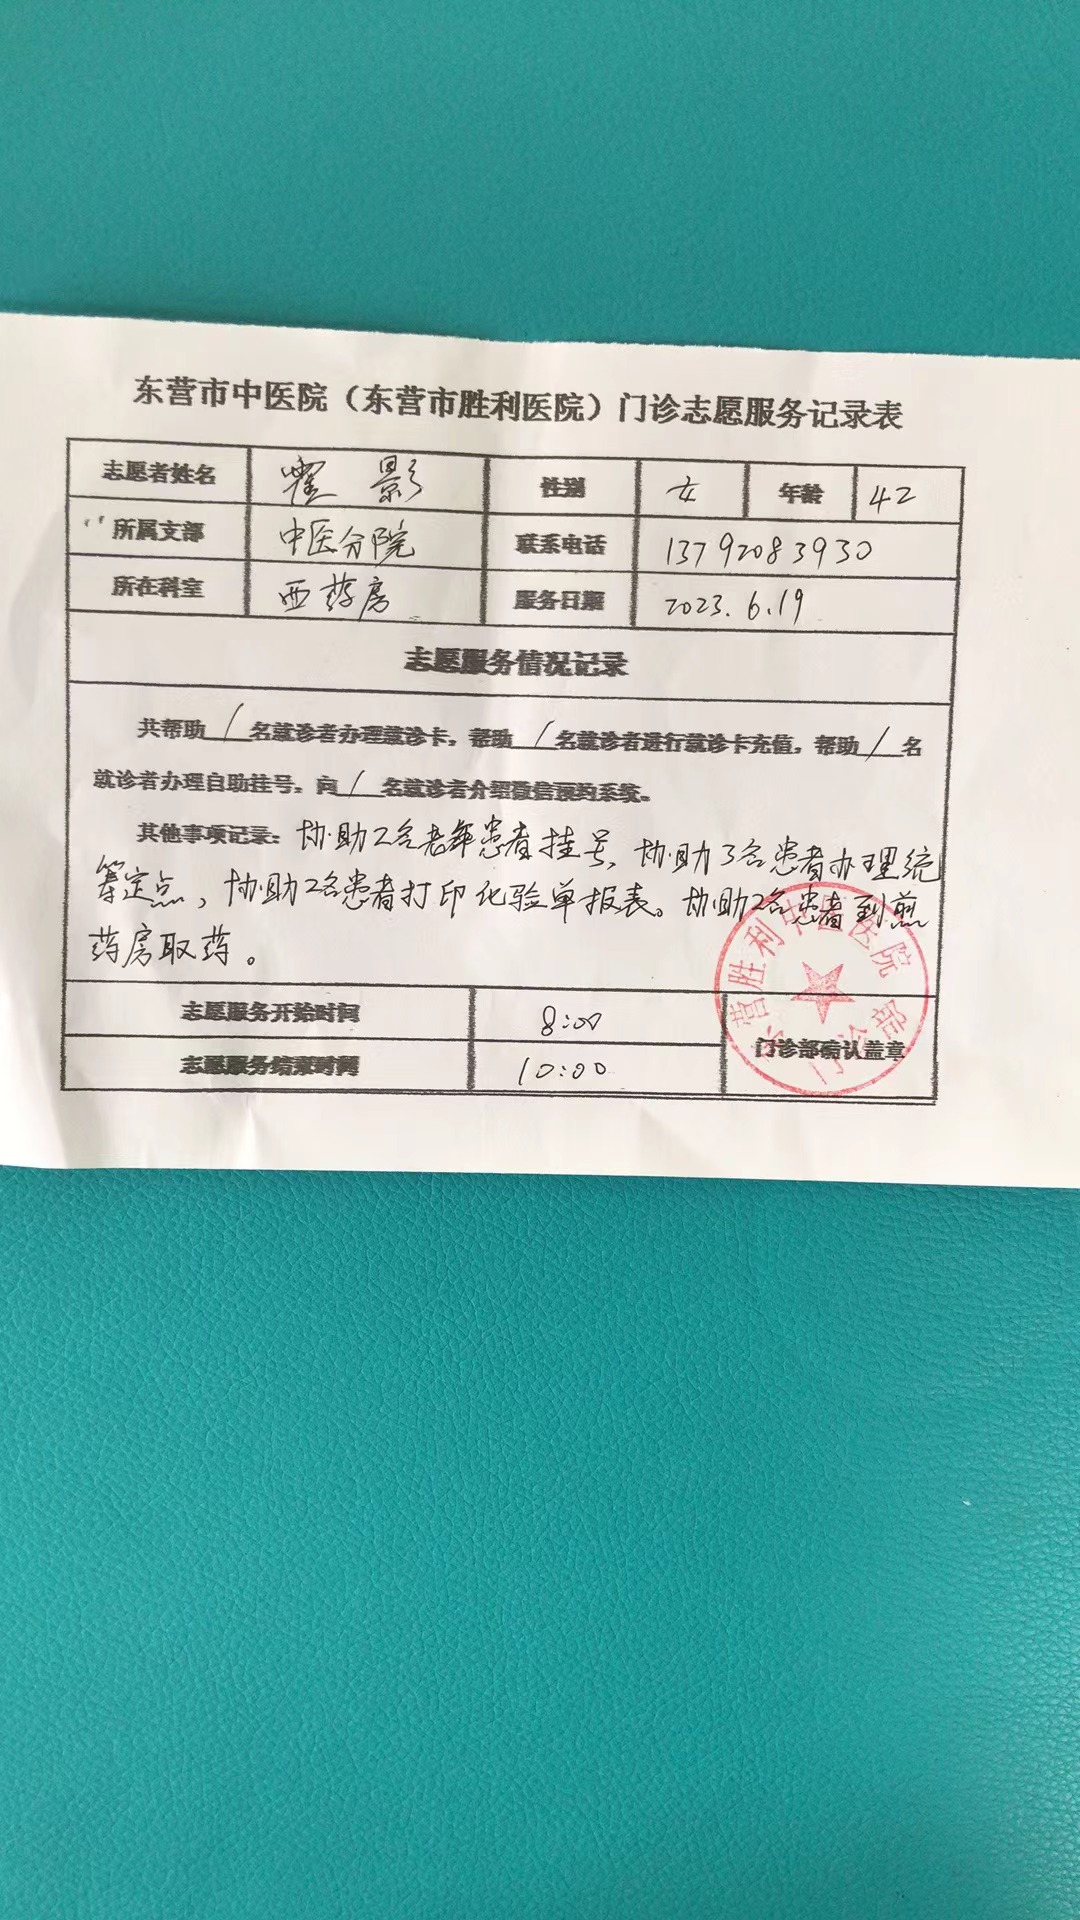 东营市中医院（东营市胜利医院）门诊志愿服务记录表
志愿者姓名 影 性别 女 年龄 42
所属支部 中医分院 联系电话 13792083930
所在科室 西药房 服务日期 2023.6.19
志愿服务情况记录
共帮助/名就诊者办理就诊卡，帮助/名就诊者进行就诊卡充值，帮助/名
就诊者办理自助挂号，向/名就诊者介绍微信预约系统。
其他事项记录：协助2名老年患者挂号，协助3名患者办理统
筹定点，协助2名患者打印化验单报表。协助2名患者到煎
药房取药。
志愿服务开始时间 8:00
志愿服务结束时间 10:00
门诊部确认盖章
东营胜利中医医院
门诊部